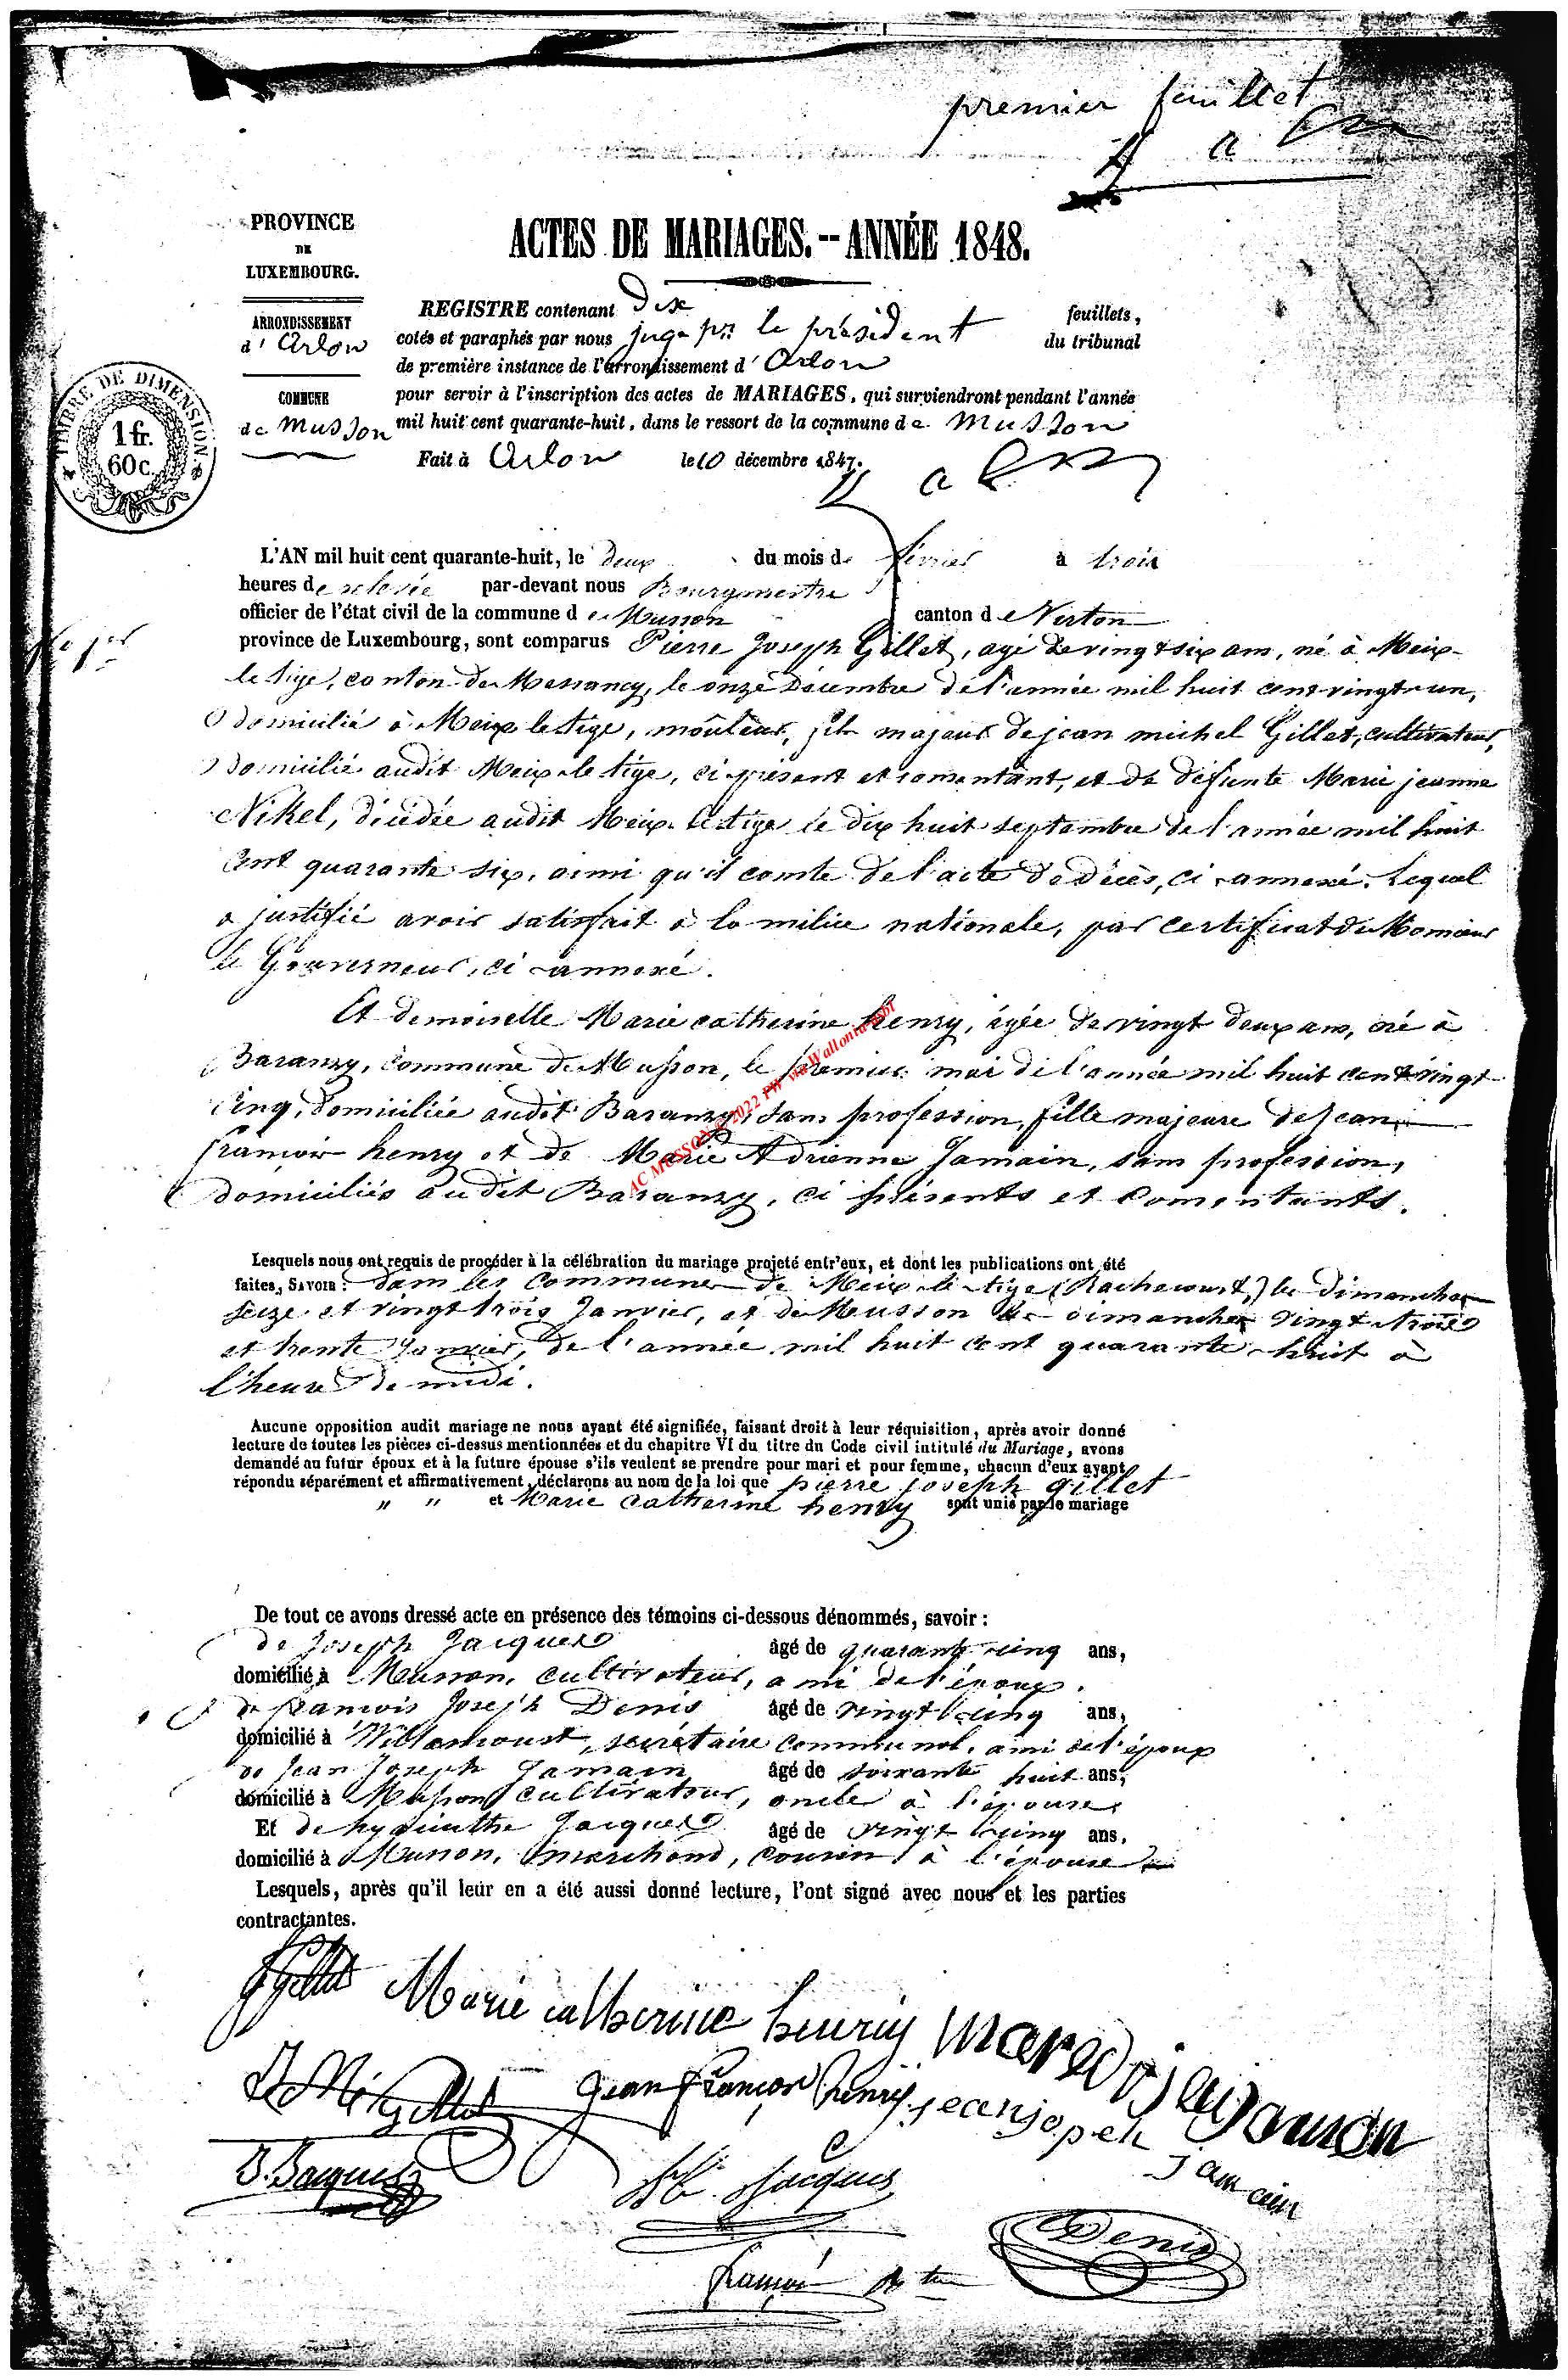 premier feuillet
PROVINCE
DE
LUXEMBOURG.
ACTES DE MARIAGES.--ANNÉE 1848.
ARRONDISSEMENT
d' Arlon
COMMUNE
de Musson
TIMBRE DE DIMENSION.
1 fr.
60 c.
REGISTRE contenant dix feuillets,
cotés et paraphés par nous juge pr le président du tribunal
de première instance de l'arrondissement d' Arlon
pour servir à l'inscription des actes de MARIAGES, qui surviendront pendant l'année
mil huit cent quarante-huit, dans le ressort de la commune de Musson
Fait à Arlon le 10 décembre 1847.
L'AN mil huit cent quarante-huit, le deux du mois de février à trois
heures de relevée par-devant nous Bourgmestre
officier de l'état civil de la commune de Musson canton de Virton
province de Luxembourg, sont comparus Pierre Joseph Gillet, agé de vingt six ans, né à Meix-
le tige, canton de Messancy, le onze Décembre de l'année mil huit cent vingt un,
domicilié à Meix le tige, mouleur, fils majeur de jean michel Gillet, cultivateur,
domicilié audit Meix-le tige, ci présent et consentant, et de défunte Marie jeanne
Nikel, décédée audit Meix le tige le dix huit septembre de l'année mil huit
cent quarante six, ainsi qu'il conste de l'acte de décès, ci-annexé. Lequel
a justifié avoir satisfait à la milice nationale, par certificat de Monsieur
le Gouverneur, ci-annexé.
Et demoiselle Marie catherine henry, âgée de vingt deux ans, né à
Baranzy, commune de Musson, le premier mai de l'année mil huit cent vingt
cinq, domiciliée audit Baranzy, sans profession, fille majeure de Jean
francois henry et de Marie Adrienne Jamain, sans profession,
domiciliés audit Baranzy, ci présents et consentants.
AC MUSSON © 2022 PW via Wallonia asbl
Lesquels nous ont requis de procéder à la célébration du mariage projeté entr'eux, et dont les publications ont été
faites, SAVOIR : dans les communes de Meix-le-tige (Rachecourt,) les dimanches
seize et vingt trois Janvier, et de Musson les dimanches vingt trois
et trente Janvier, de l'année mil huit cent quarante huit à
l'heure de midi.
Aucune opposition audit mariage ne nous ayant été signifiée, faisant droit à leur réquisition, après avoir donné
lecture de toutes les pièces ci-dessus mentionnées et du chapitre VI du titre du Code civil intitulé du Mariage, avons
demandé au futur époux et à la future épouse s'ils veulent se prendre pour mari et pour femme, chacun d'eux ayant
répondu séparément et affirmativement, déclarons au nom de la loi que pierre joseph gillet
" " et Marie Catherine henry sont unis par le mariage
De tout ce avons dressé acte en présence des témoins ci-dessous dénommés, savoir :
de Joseph Jacques âgé de quarante cinq ans,
domicilié à Musson, cultivateur, ami de l'époux.
de francois Joseph Denis âgé de vingt cinq ans,
domicilié à Willancourt, secrétaire communal, ami de l'époux
de Jean Joseph Jamain âgé de soixante huit ans,
domicilié à Musson cultivateur, oncle à l'épouse
Et de hyacinthe Jacques âgé de vingt cinq ans.
domicilié à Musson, marchand, cousin à l'épouse
Lesquels, après qu'il leur en a été aussi donné lecture, l'ont signé avec nous et les parties
contractantes.
Gillet Marie catherine henry
Gillet jean françois henry jean joseh jamain
J. Jacques Jacques
Denis